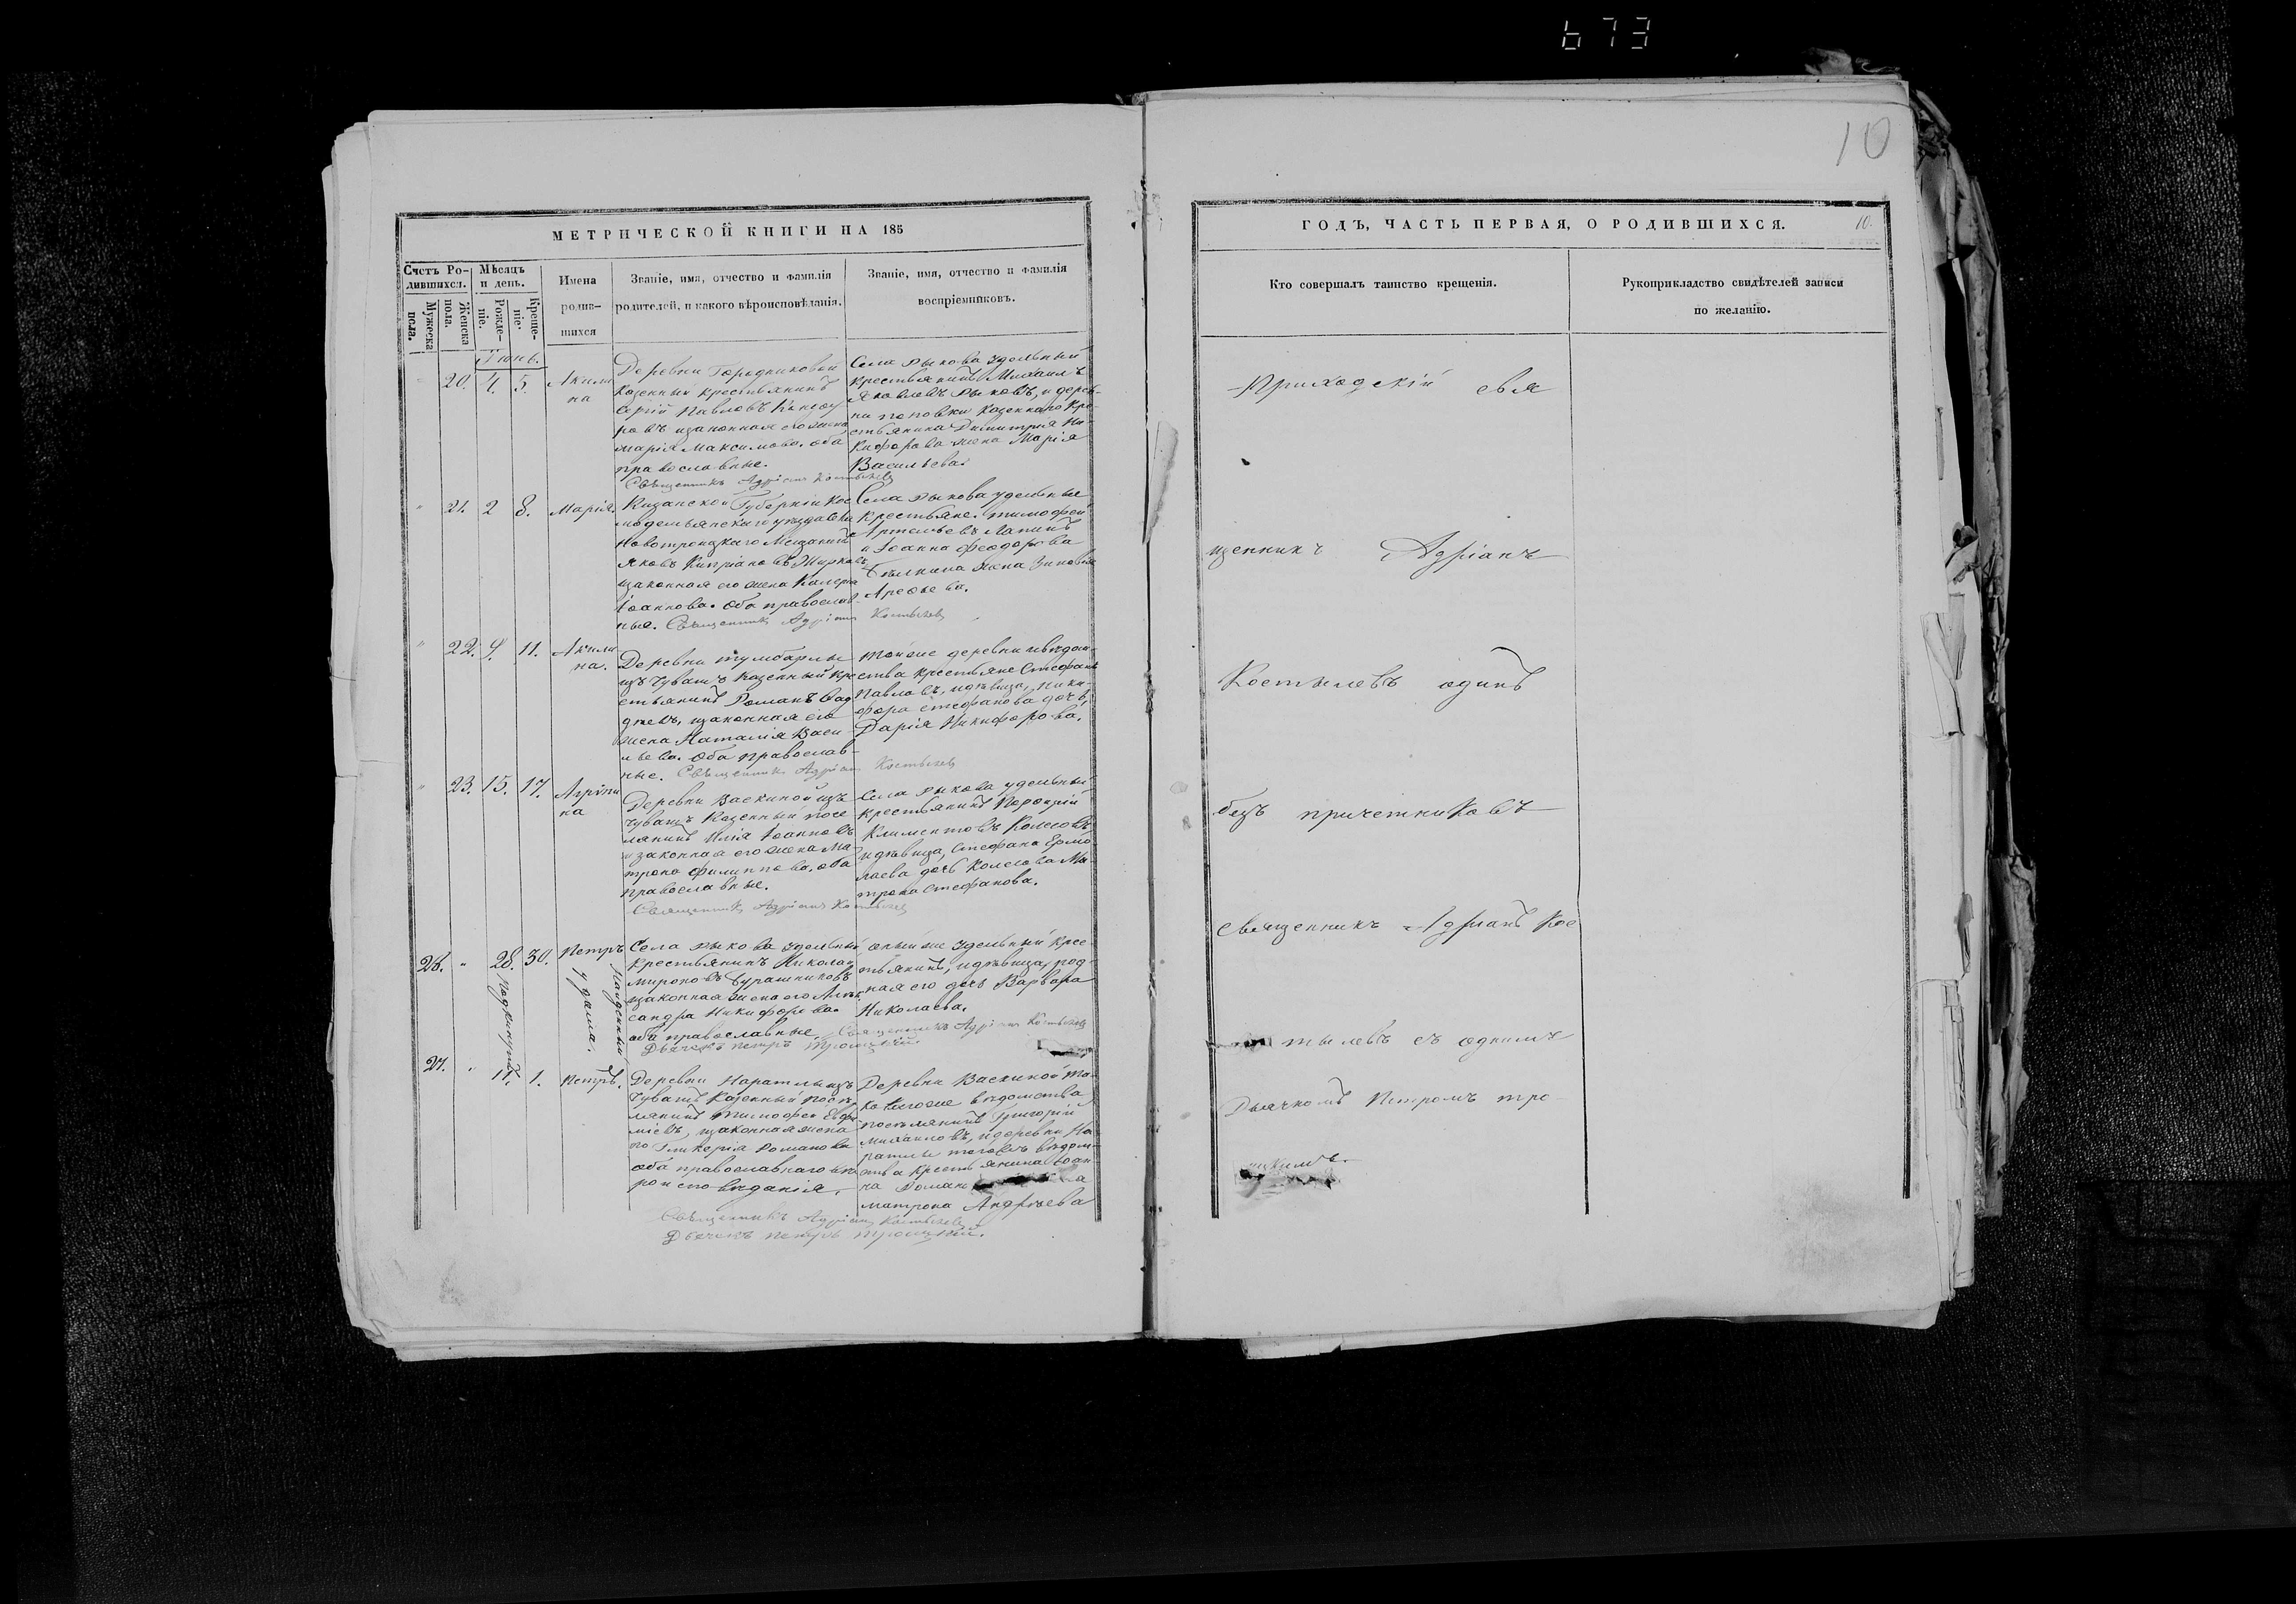 673
10
МЕТРИЧЕСКОЙ КНИГИ НА 185
Счетъ Ро-
дившихся.
Мужеска
пола.
Женска
пола.
Мѣсяцъ
и день.
Рожде-
ніе.
Креще-
ніе.
Имена
родив-
шихся
Званіе, имя, отчество и фамилія
родителей, и какого вѣроисповѣданія.
Званіе, имя, отчество и фамилія
воспріемниковъ.
Іюнь.
20. 4. 5.
Акили
на
Деревни
казенный крестьянинъ
Сергій Павловъ
ровъ изаконная его жена
Марія Максимова. оба
православные.
Священникъ Адріанъ Костылев
Села Рыкова удельный
крестьянинъ Михаилъ
Яковлевъ Рыковъ, и дерев-
ни поповки казеннаго кре-
стьянина Димитрія Ни-
кифорова жена Марія
Васильева.
" 21. 2 8. Марія
Казанской Губерніи Кос
модемьянскаго уѣзда
Яковъ Кипріановъ
изаконная его жена
Іоаннова. Оба православ-
ные. Священникъ Адріанъ Костылев
Села Рыкова удельные
крестьяне. Тимофей
Артемьевъ Лапинъ
и Іоанна Феодорова
жена
" 22. 4. 11.
Акили
на.
Деревни
изъ Чувашъ казенный кре
стьянинъ Романъ
изаконная его
жена Наталія Васи
льева. Оба православ-
ные. Священникъ Адріанъ Костылев
тойже деревни ивѣдом-
ства крестьяне Стефанъ
Павловъ, идѣвица, Ники-
фора Стефанова дочь,
Дарія Никифорова.
" 23. 15. 17.
Агрипи
на
Деревни Васкиной изъ
Чувашъ казенный посе
лянинъ Илія Іоанновъ
изаконная его жена Ма
трона Филиппова, оба
православные.
Священникъ Адріанъ Костылев
Села Рыкова удельный
крестьянинъ
Климентовъ Колесовъ,
идѣвица, Стефана Ермо
лаева дочь Колесова Ма-
трона Стефанова.
26. " 28. 30. Петръ
Подкинутъ
найденный
у дома.
Села Рыкова удельный
крестьянинъ Николай
Мироновъ Бурашниковъ
изаконная жена его Алек
сандра Никифорова.
оба православные. Священникъ Адріанъ Костылев
Дьячекъ Петръ Троицкій.
оный же удельный крес
тьянинъ, идѣвица, род-
ная его дочь Варвара
Николаева.
27. " 1. Петръ.
Деревни Наратлы изъ
Чувашъ казенный посе
лянинъ Тимофей
изаконная жена
его Гликерія Романова
оба православнаго вѣ
роисповѣданія.
Священникъ Адріанъ Костылев
Дьячекъ Петръ Троицкій.
Деревни Васкиной та
коваго же вѣдомства
поселянинъ Григорій
Михаиловъ, идеревни На
ратлы тогожъ вѣдом-
ства крестьянина Іоан-
на
Матрона Андреева
ГОДЪ, ЧАСТЬ ПЕРВАЯ, О РОДИВШИХСЯ.
10.
Кто совершалъ таинство крещенія.
Рукоприкладство свидѣтелей записи
по желанію.
Приходскій свя
щенникъ Адріанъ
Костылевъ одинъ
безъ причетниковъ
священникъ Адріанъ Кос
тылевъ съ однимъ
Дьячкомъ Петромъ Тро-
ицкимъ.